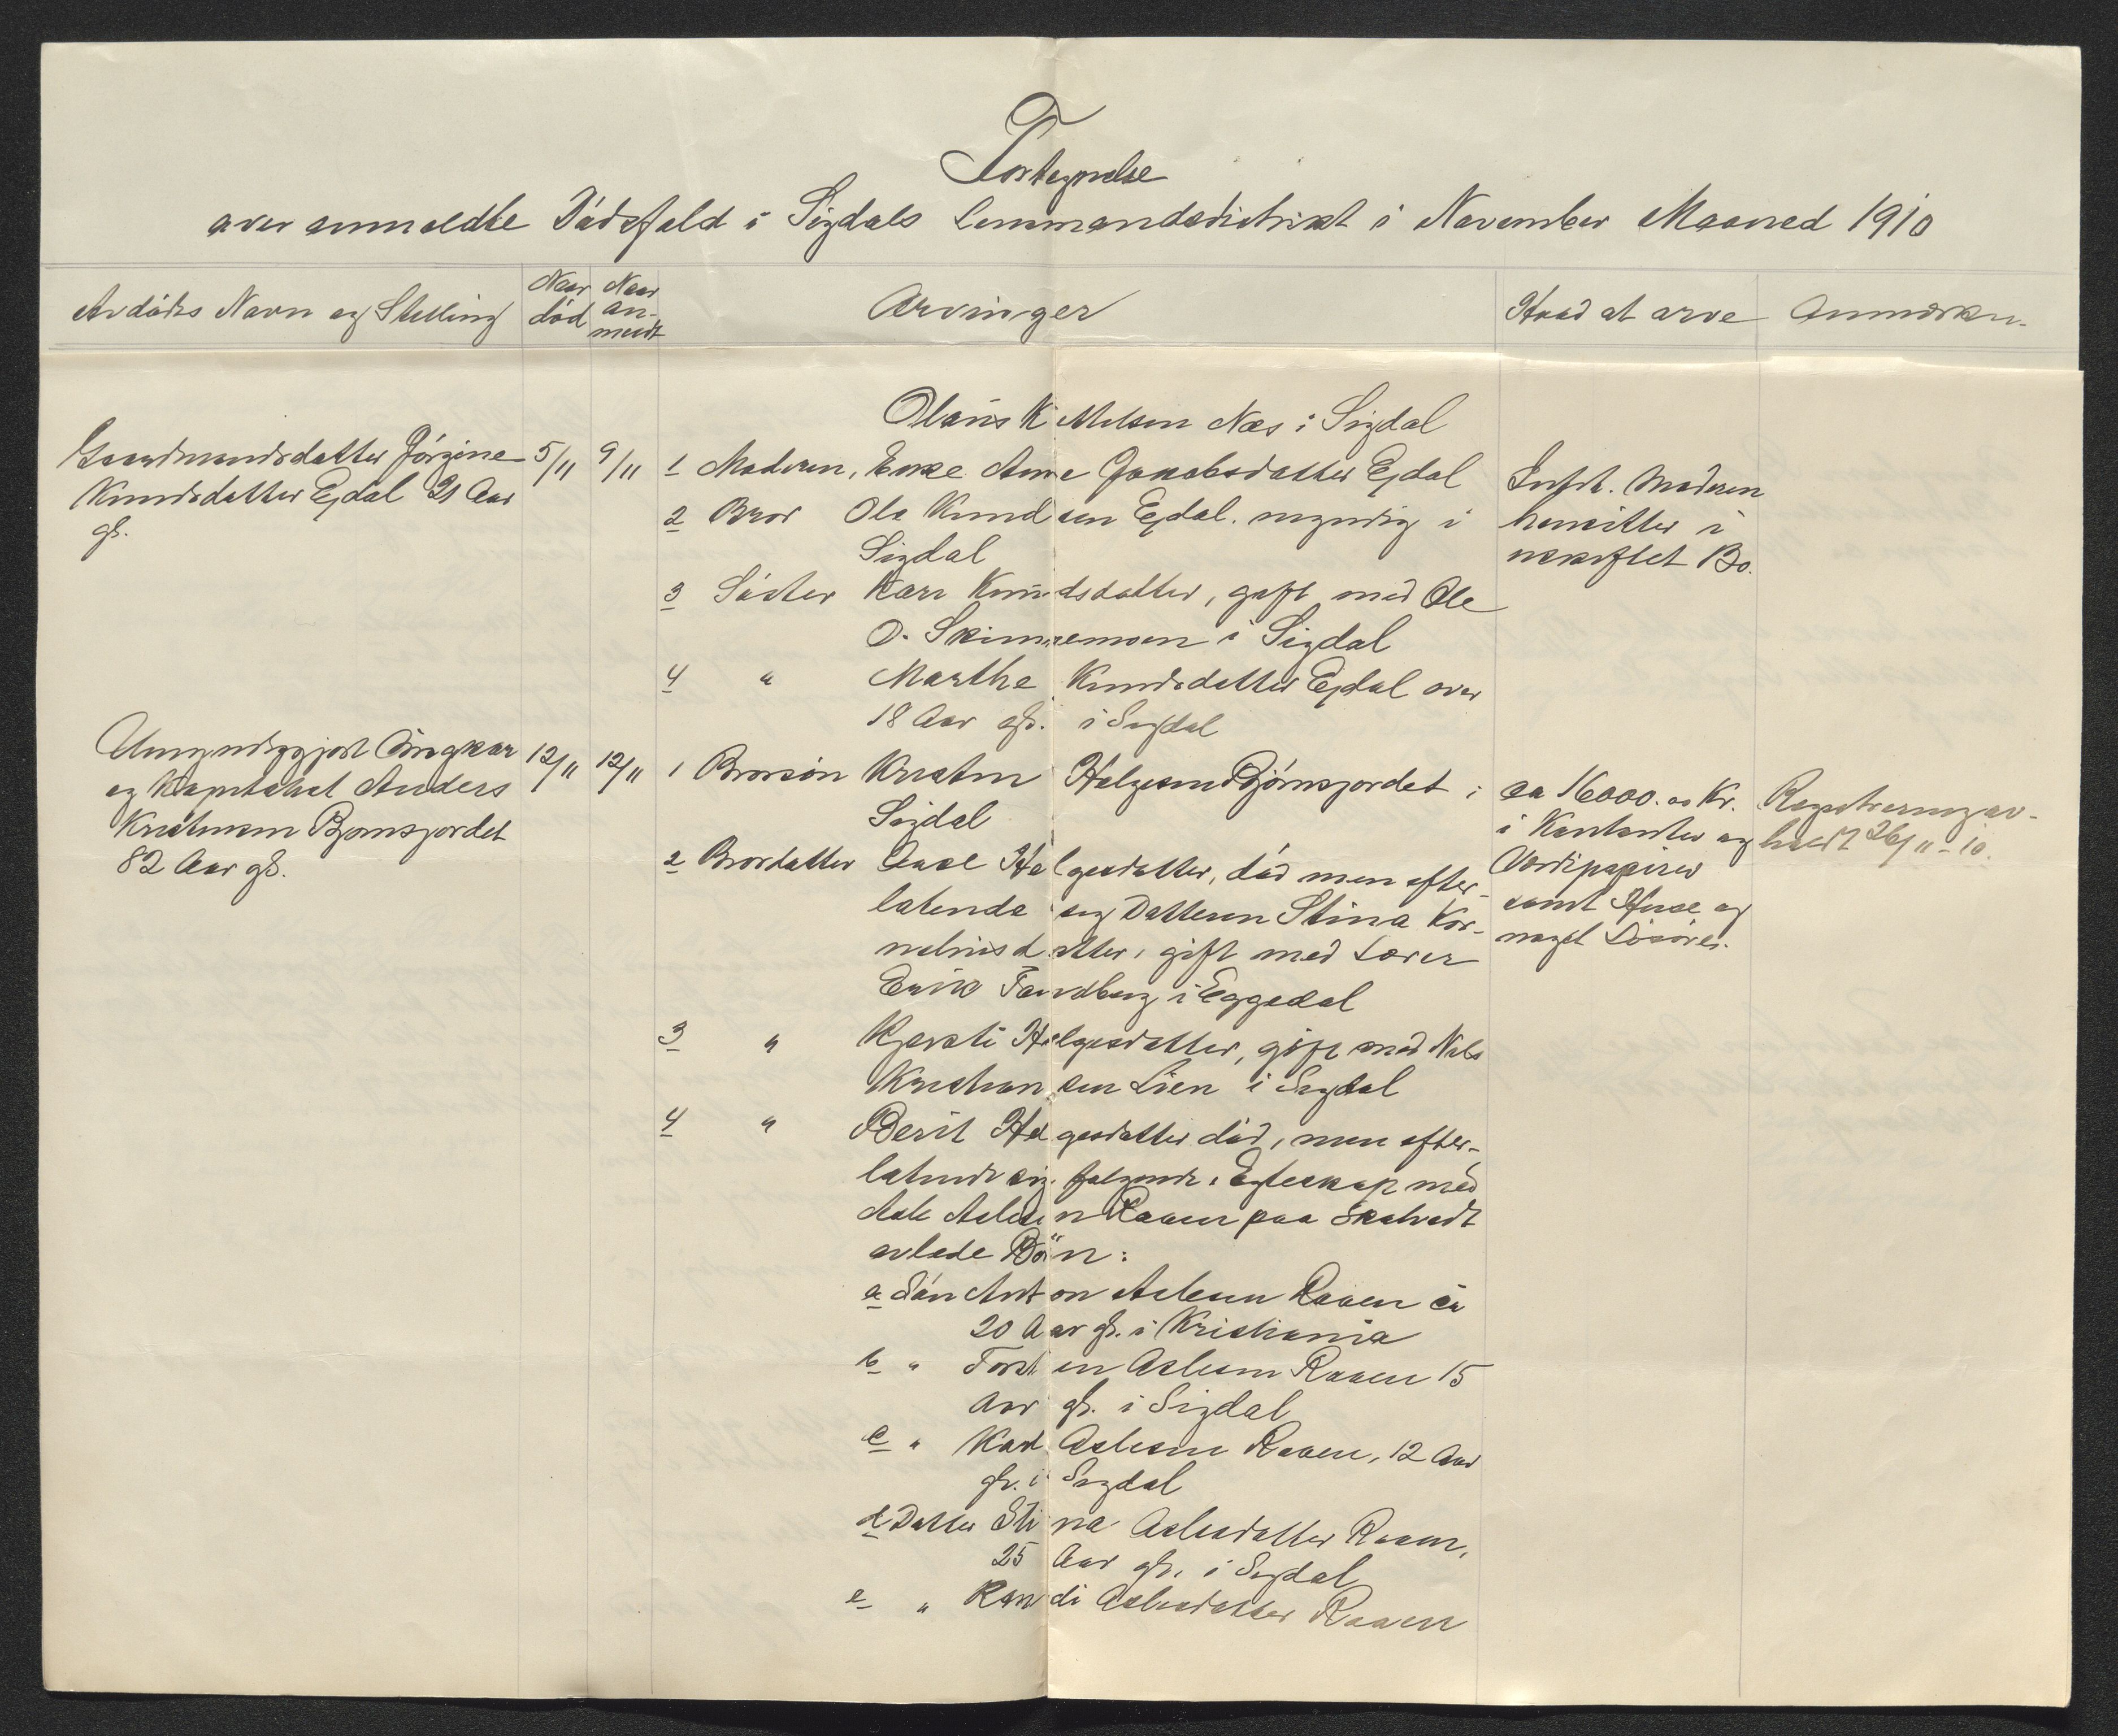 Fortegnelse
over anmeldte Dødsfald i Sigdals Lensmandsdistrikt i November Maaned 1910
Avdødes Navn og Stilling
Naar død
Naar anmeldt
Arvinger
Hvad at arve
Anmærkn.
Olaus K Nilsen Næs i Sigdal
Gaardmandsdatter Jörgine
Knudsdatter Ejdal 21 Aar
gl.
5/11
9/11
1 Moderen, Enke Anne Jakobsdatter Ejdal
2 Bror Ole Knudsen Ejdal. myndig i
Sigdal
3 Söster Kari Knudsdatter, gift med Ole
O. Skinnemoen i Sigdal
4 " Marthe Knudsdatter Ejdal over
18 Aar gl. i Sigdal
Intet. Moderen
hensitter i
uskiftet Bo.
Umyndiggjort Ungkar
og Kapitalist Anders
Kristensen Bjornsjordet
82 Aar gl.
12/11
12/11
1 Brorsön Kristen Helgesen Björnsjordet i
Sigdal
2 Brordatter Aase Helgesdatter, död men efter-
latende sig Datteren Stina Kor-
neliusdatter, gift med Lærer
Erik Tandberg i Eggedal
3 " Kjersti Helgesdatter, gift med Nils
Kristiansen Lien i Sigdal
4 " Berit Helgesdatter död, men efter-
latende sig følgende i Egteskap med
Asle Aslesen Raaen paa Skalvedt
avlede Börn:
a Sön Anton Aslesen Raaen ca
20 Aar gl. i Kristiania
b " Torsten Aslesen Raaen 15
Aar gl. i Sigdal
c " Karl Aslesen Raaen, 12 Aar
gl. i Sigdal
d Datter Stina Aslesdatter Raaen,
25 Aar gl. i Sigdal
e " Randi Aslesdatter Raaen
ca 16000.00 Kr.
i Kontanter og
Værdipapirer
samt Huse og
noget Lösöre.
Registrering av-
holdt 26/11-10.